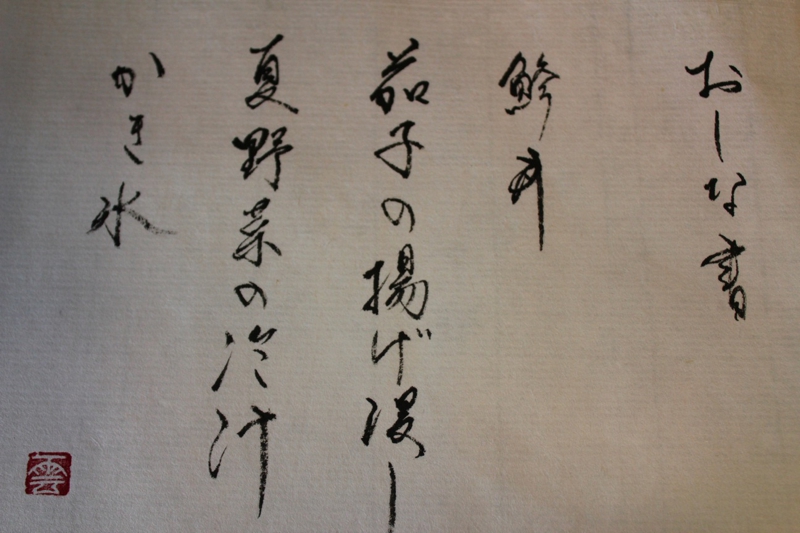 おしな書
鯵丼
茄子の揚げ浸し
夏野菜の冷汁
かき氷
雲